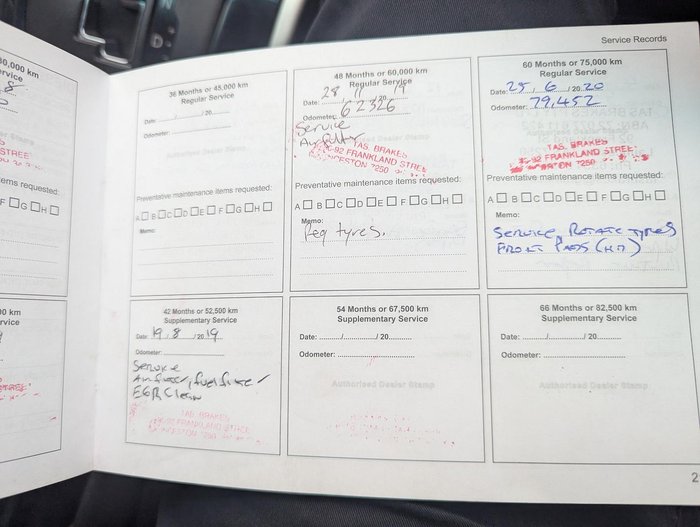 Service Records
0,000 km
rvice
8
STREE
ems requested:
F □ G □ H □
00 km
rvice
36 Months or 45,000 km
Regular Service
Date: ....../....../ 20......
Odometer:
Authorised Dealer Stamp
Preventative maintenance items requested:
A □ B □ C □ D □ E □ F □ G □ H □
Memo:
48 Months or 60,000 km
Regular Service
Date: 28 / 11 / 20 19
Odometer: 62326
Service
Air filter
TAS. BRAKES
90-92 FRANKLAND STREE
LAUNCESTON 7250
Preventative maintenance items requested:
A □ B □ C □ D □ E □ F □ G □ H □
Memo:
Req tyres.
60 Months or 75,000 km
Regular Service
Date: 25 / 6 / 20 20
Odometer: 79,452
TAS. BRAKES
92 FRANKLAND STREE
7250
Preventative maintenance items requested:
A □ B □ C □ D □ E □ F □ G □ H □
Memo:
SERVICE, ROTATE TYRES
FRONT PADS (HD)
42 Months or 52,500 km
Supplementary Service
Date: 19 / 8 / 20 19
Odometer:
Service
Air filter, fuel filter /
EGR Clean
TAS. BRAKES
92 FRANKLAND STREE
7250
54 Months or 67,500 km
Supplementary Service
Date: ....../....../ 20......
Odometer:
Authorised Dealer Stamp
66 Months or 82,500 km
Supplementary Service
Date: ....../....../ 20......
Odometer:
Authorised Dealer Stamp
2